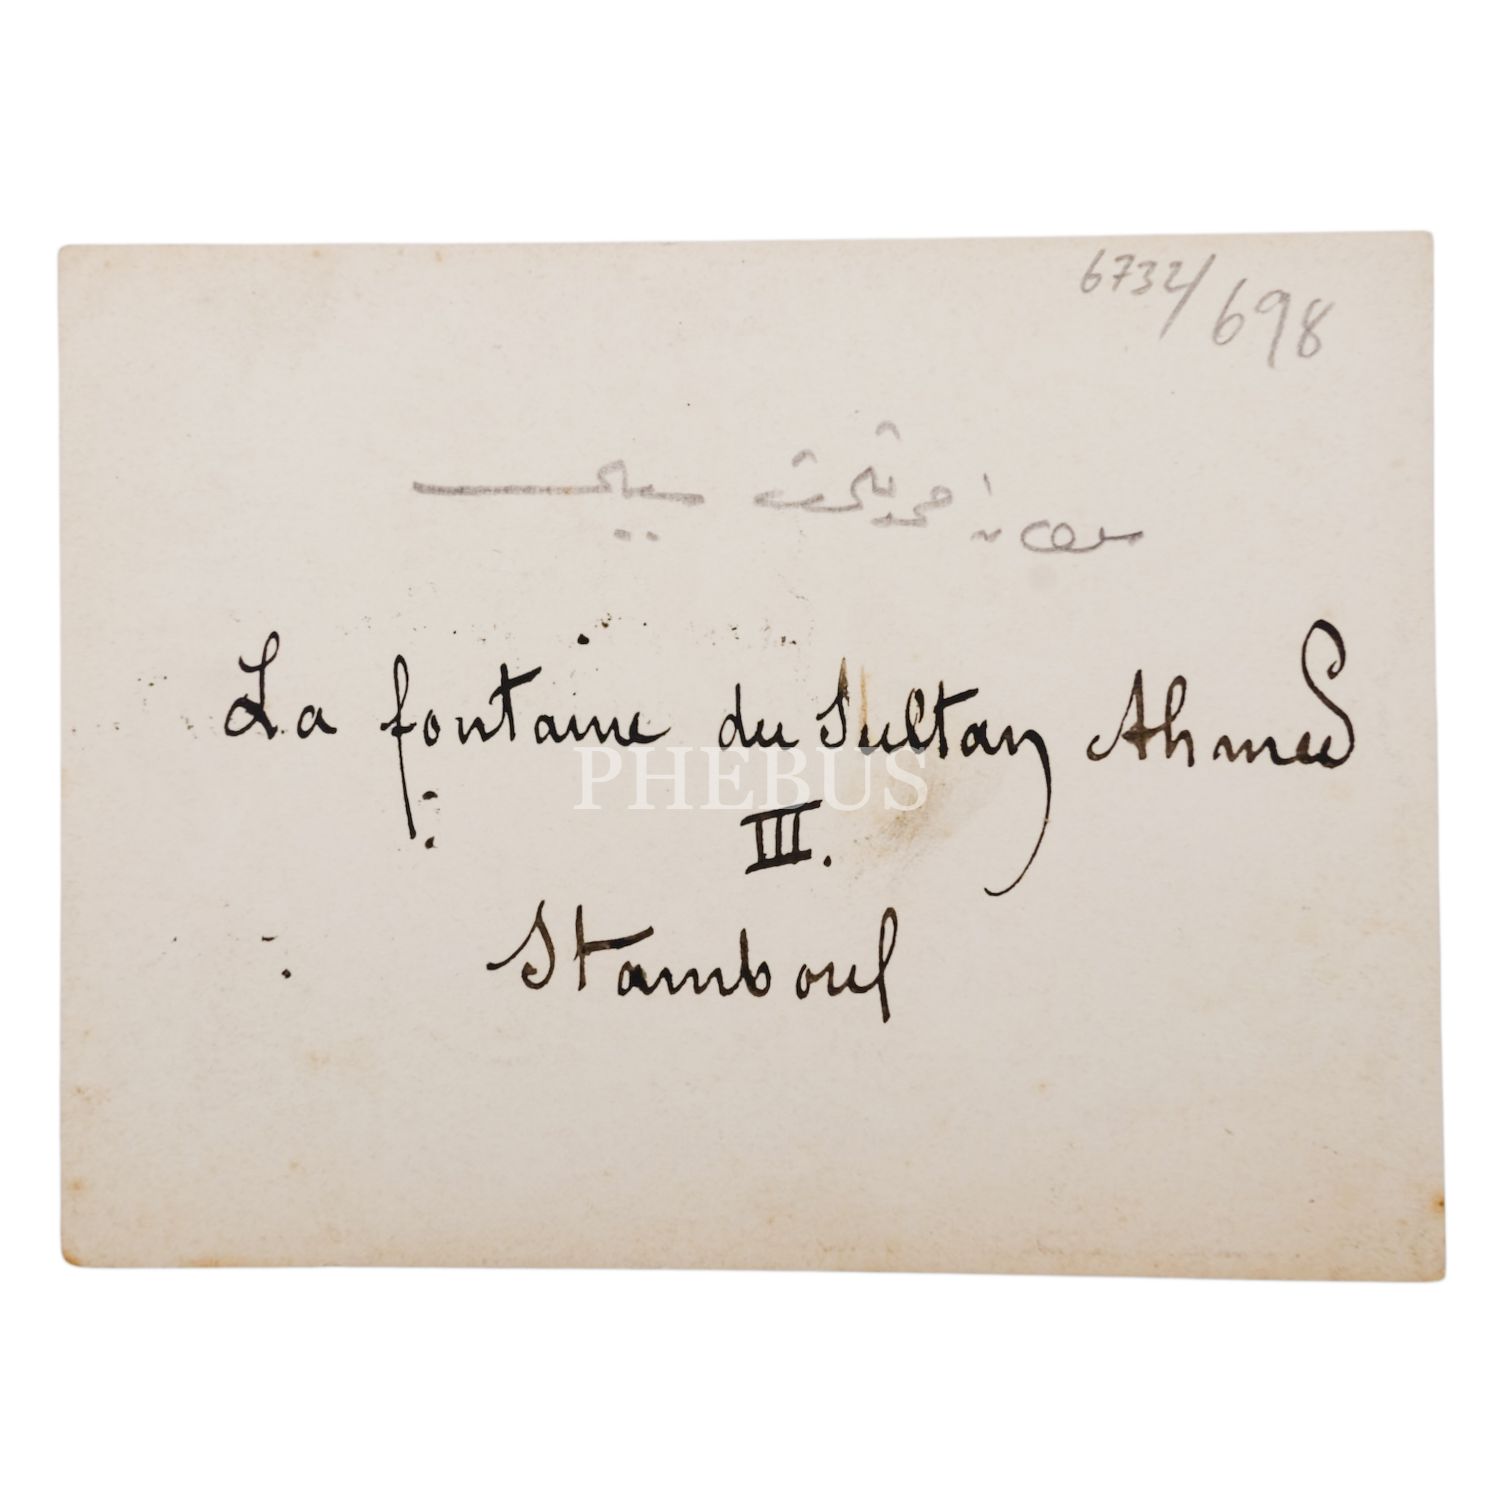 6732/698
La fontaine du Sultan Ahmed
III.
Stamboul
PHEBUS